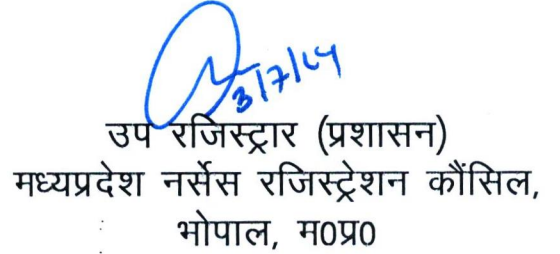 3/7/24
उप रजिस्ट्रार (प्रशासन)
मध्यप्रदेश नर्सेस रजिस्ट्रेशन कौंसिल,
भोपाल, म0प्र0